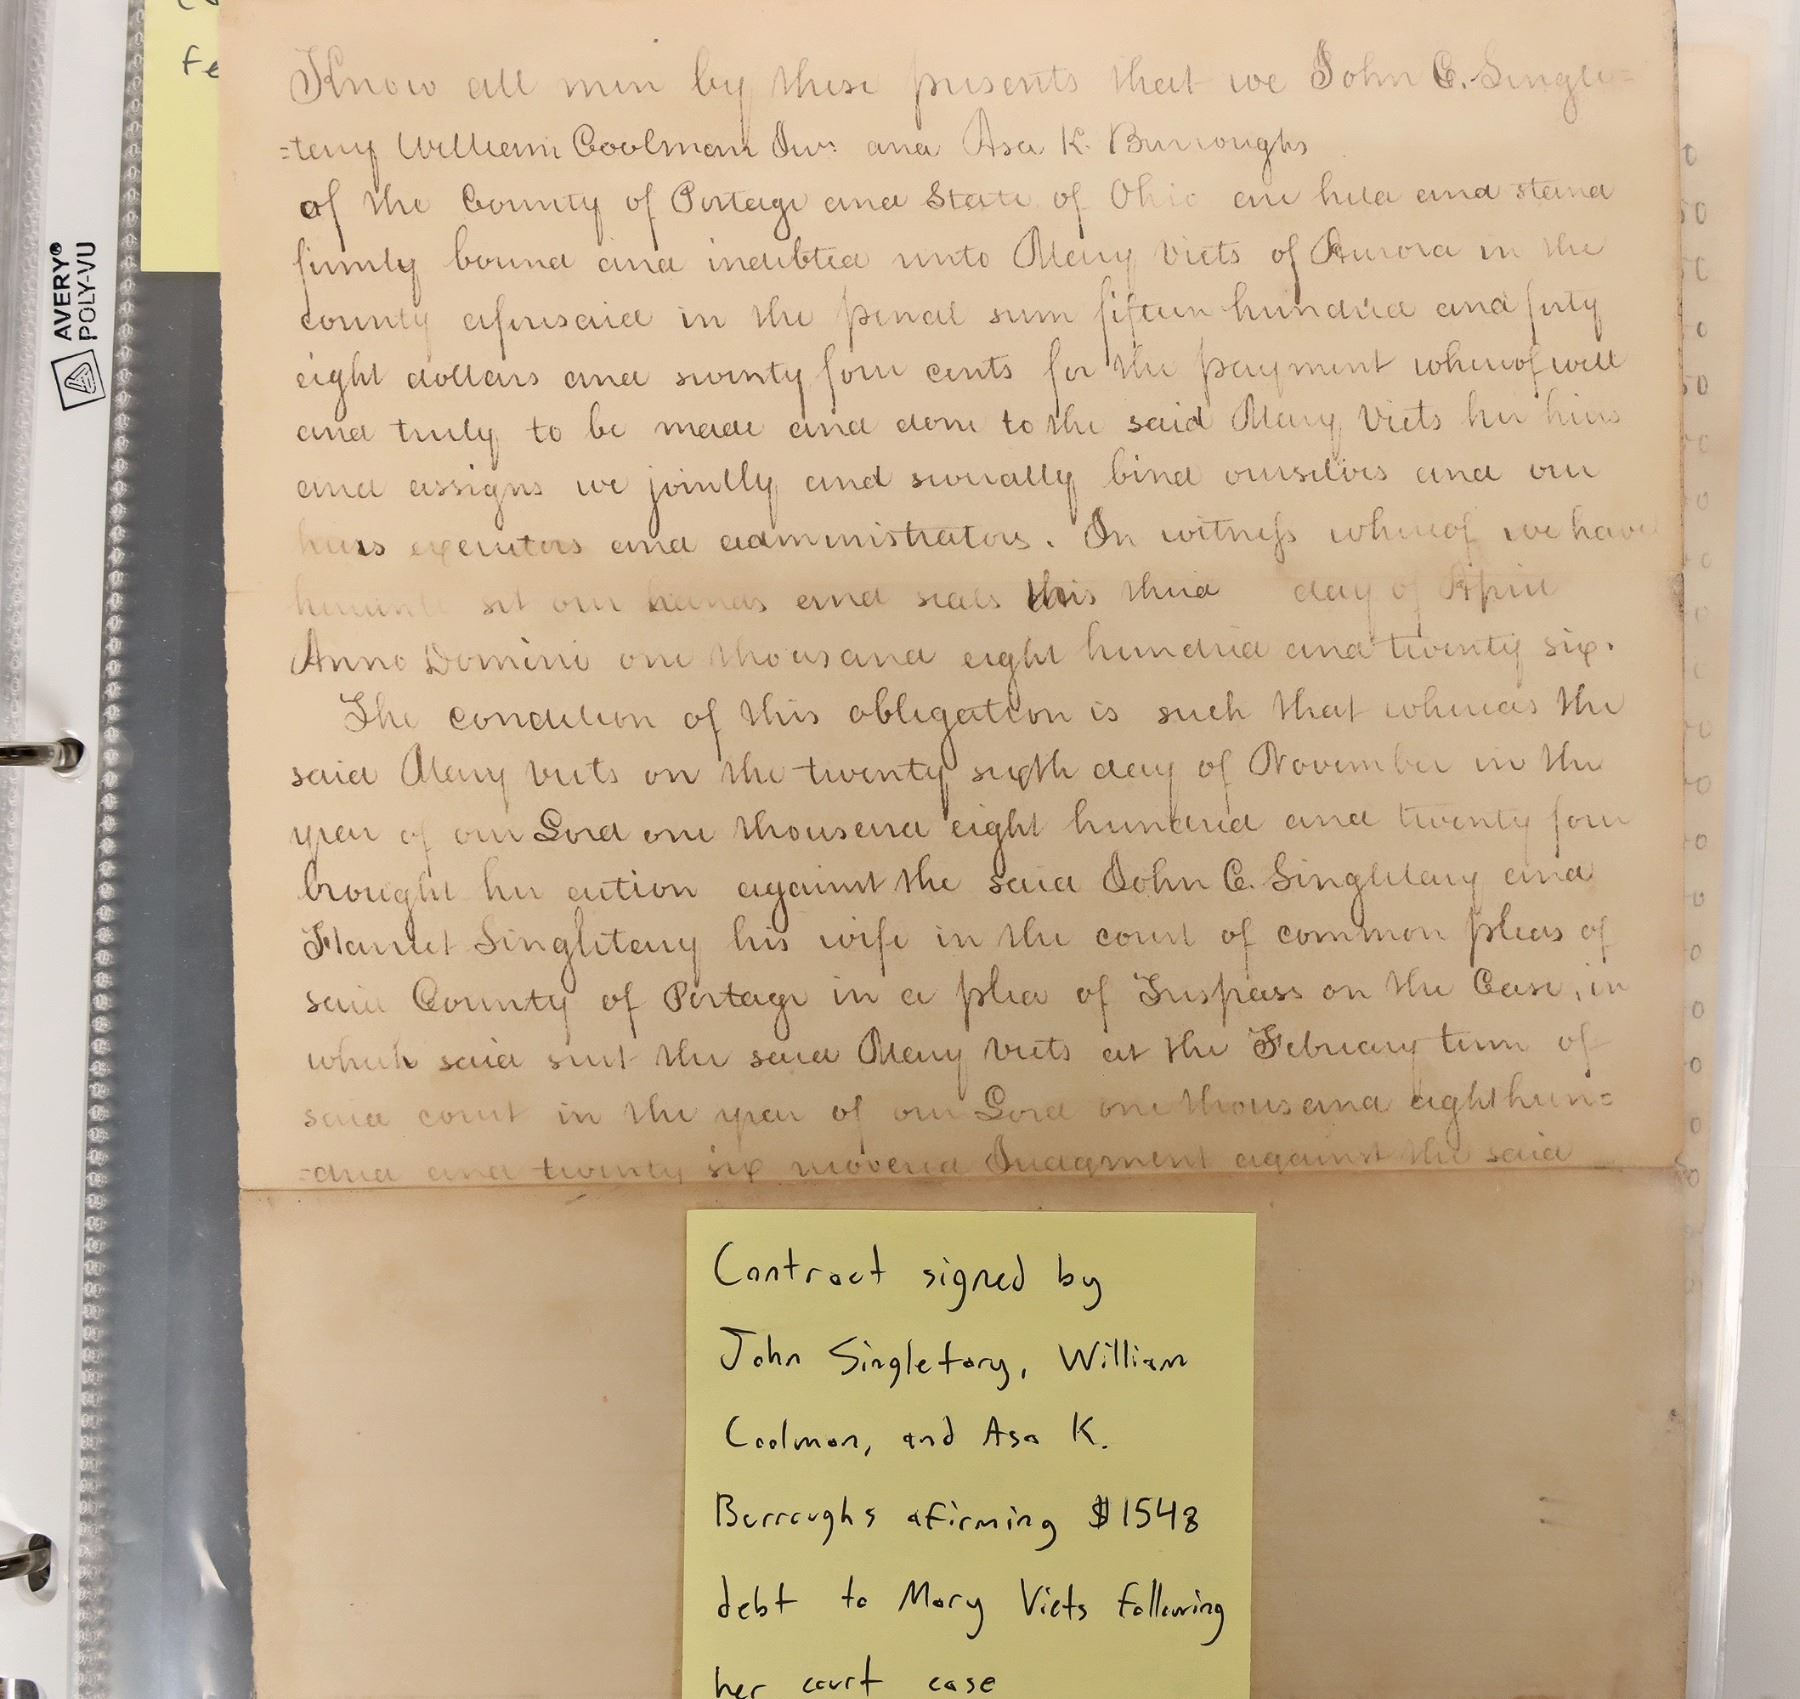 fe
AVERY®
POLY-VU
Know all men by these presents that we John C. Single=
=tery William Coolman Jur. and Asa K. Burroughs
of the County of Portage and State of Ohio are held and stand
firmly bound and indebted unto Mary Viets of Aurora in the
county aforesaid in the penal sum fifteen hundred and forty
eight dollars and seventy four cents for the payment whereof well
and truly to be made and done to the said Mary Viets her heirs
and assigns we jointly and severally bind ourselves and our
heirs executors and administrators. In witness whereof we have
hereunto set our hands and seals this third day of April
Anno Domini one thousand eight hundred and twenty six.
The condition of this obligation is such that whereas the
said Mary Viets on the twenty sixth day of November in the
year of our Lord one thousand eight hundred and twenty four
brought her action against the said John C. Singletary and
Harriet Singletery his wife in the court of common pleas of
said County of Portage in a plea of Trespass on the Case, in
which said suit the said Mary Viets at the February term of
said court in the year of our Lord one thousand eight hun=
=dred and twenty six recovered Judgment against the said
Contract signed by
John Singletary, William
Coolman, and Asa K.
Burroughs afirming $1548
debt to Mary Viets following
her court case